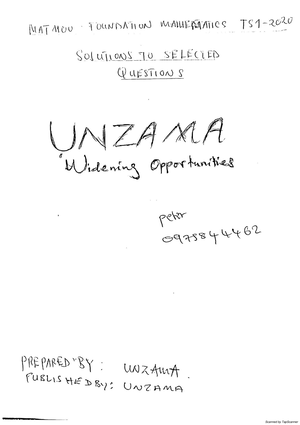 MATM00 - FOUNDATION MATHEMATICS TS1-2020
SOLUTIONS TO SELECTED
QUESTIONS
UNZAMA
"Widening Opportunities
peter
0975844462
PREPARED BY: UNZAMA.
PUBLISHED BY: UNZAMA
Scanned by TapScanner